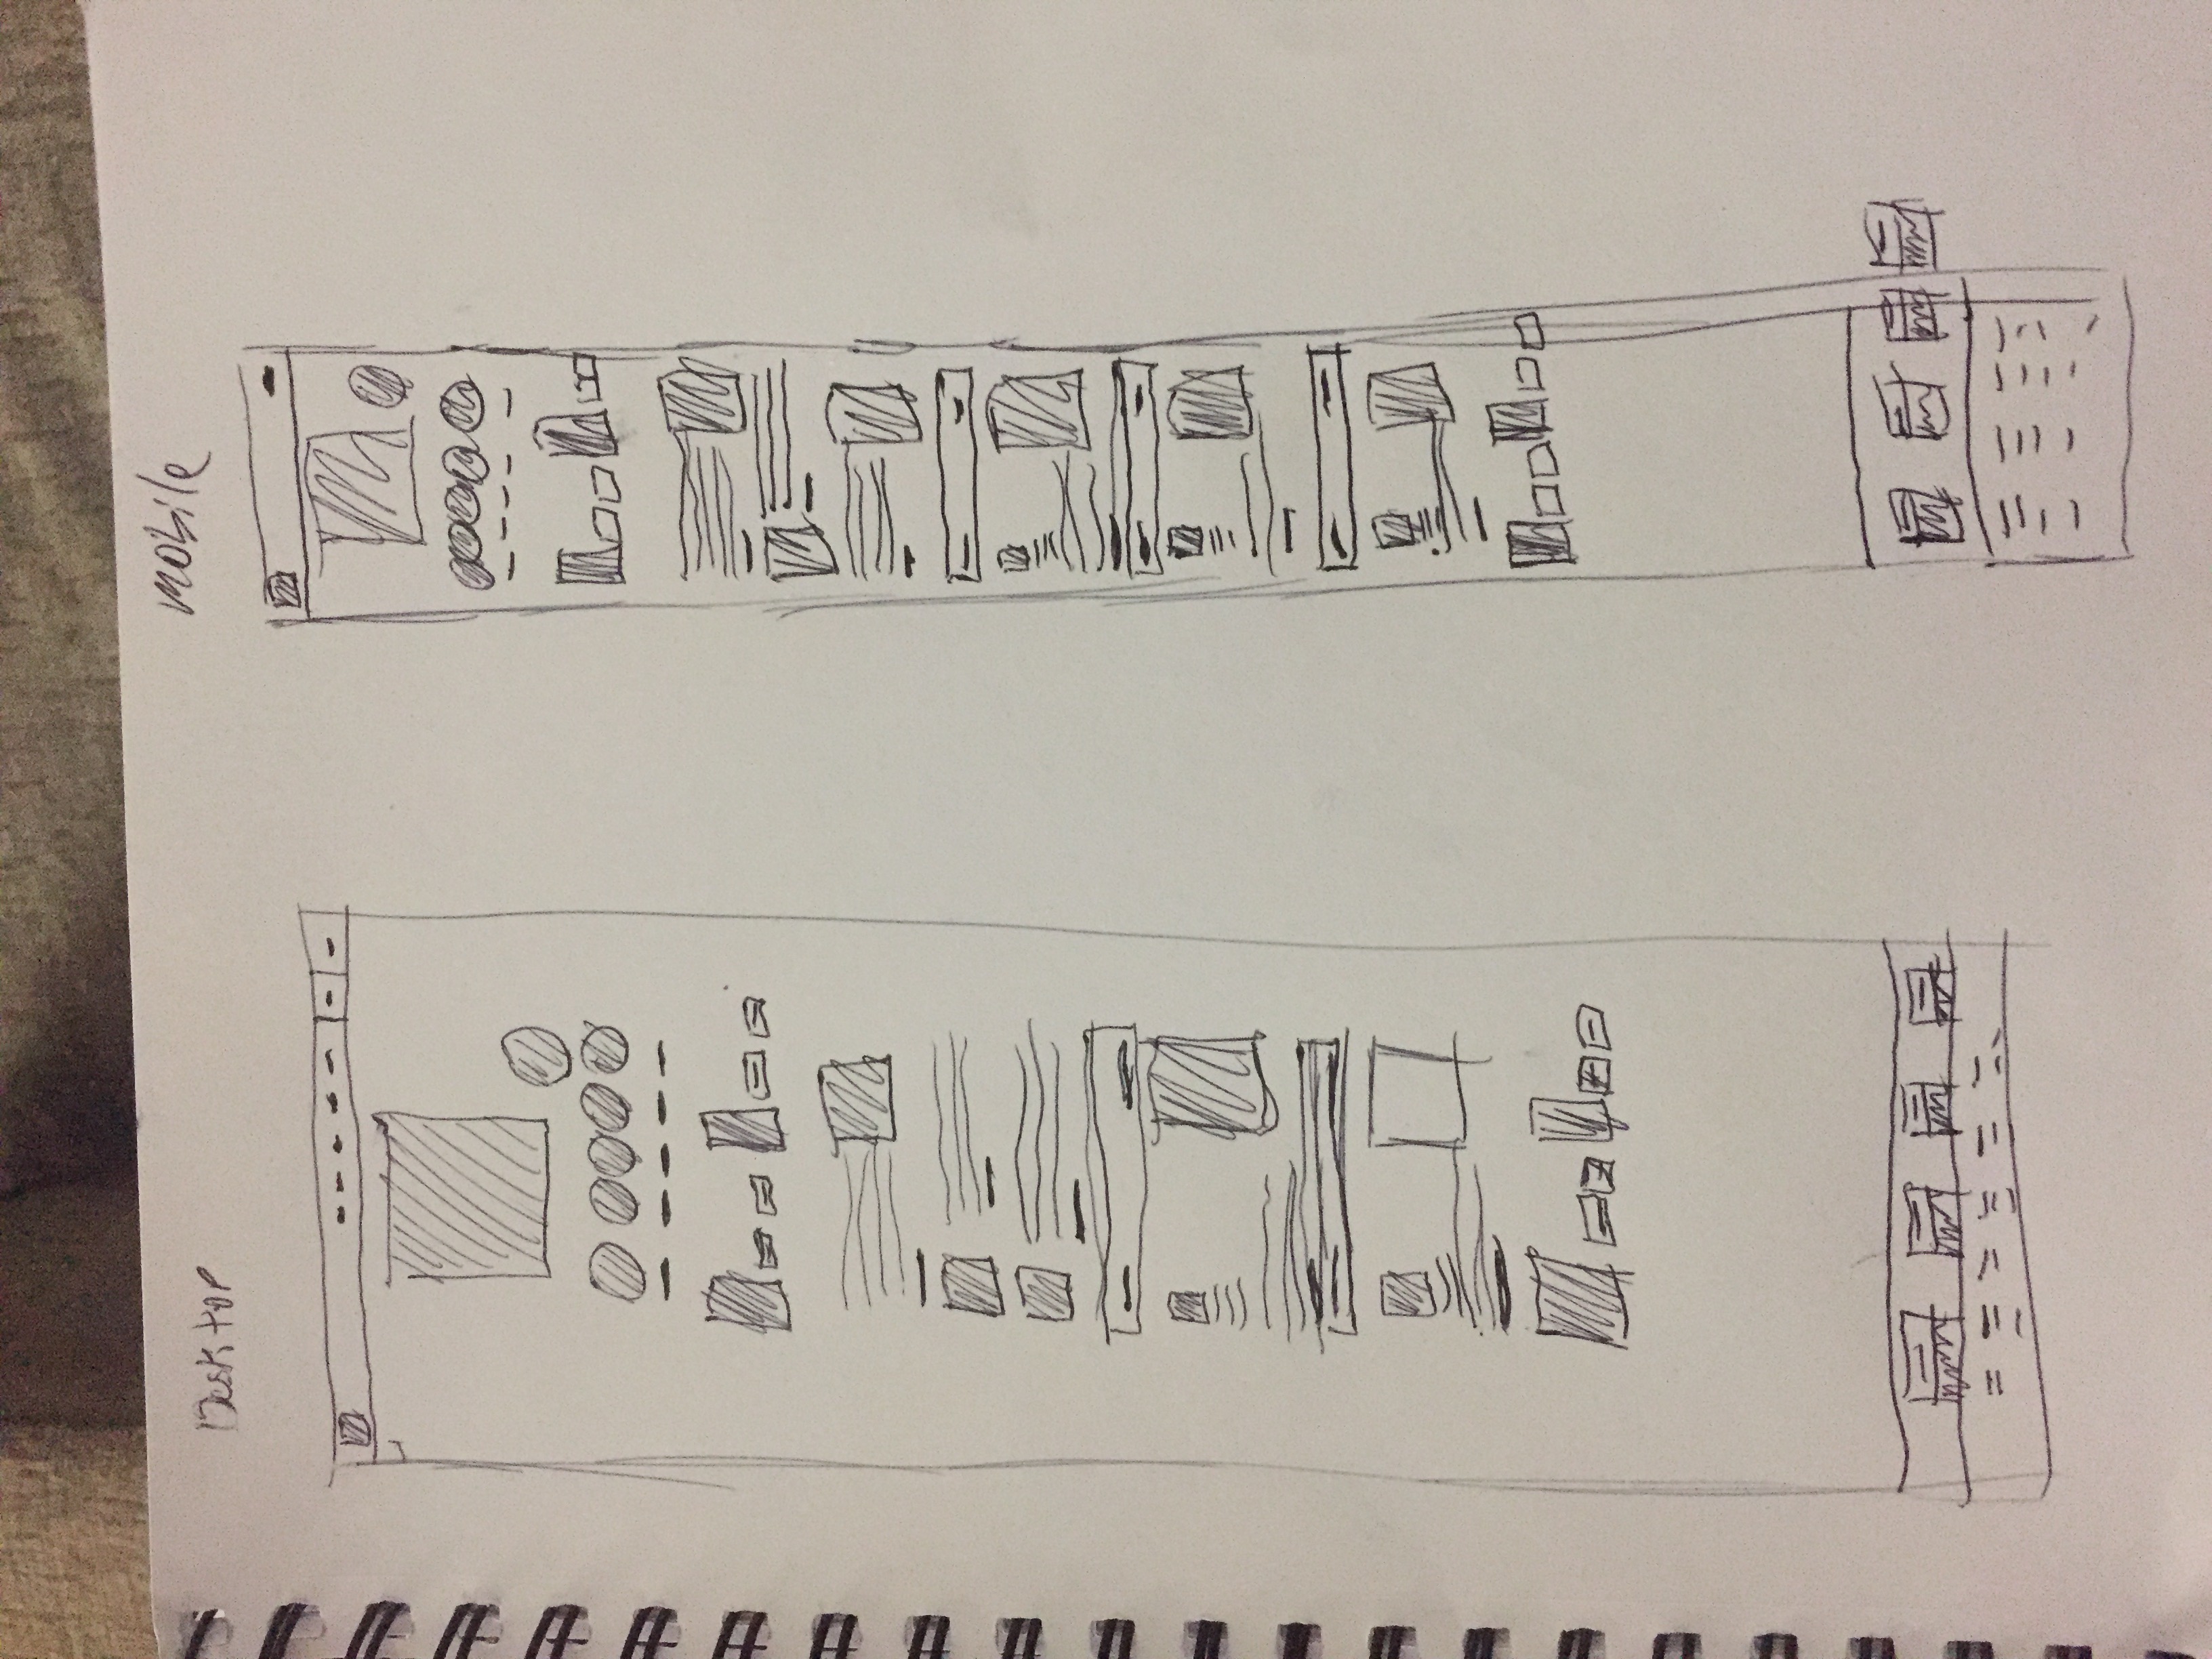 Desktop
mobile